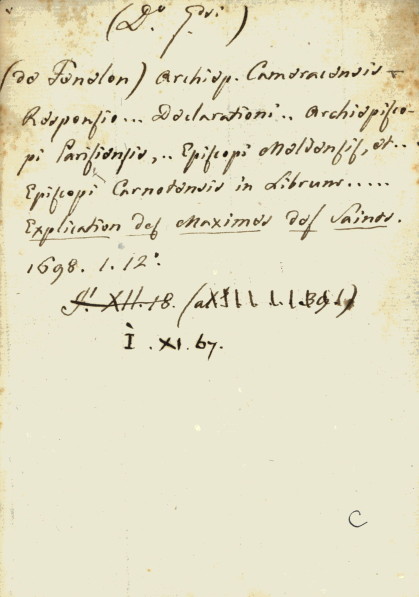 (De
(de Fenelon) Archiep. Cameracensis
Responsio... Declarationi.. Archiepisco-
pi Parisiensis,.. Episcopi Meldensis, et..
Episcopi Carnotensis in Librum.....
Explication des Maximes des Saints.
1698. 1. 12°.
XII. 18.
I. XI. 67.
C